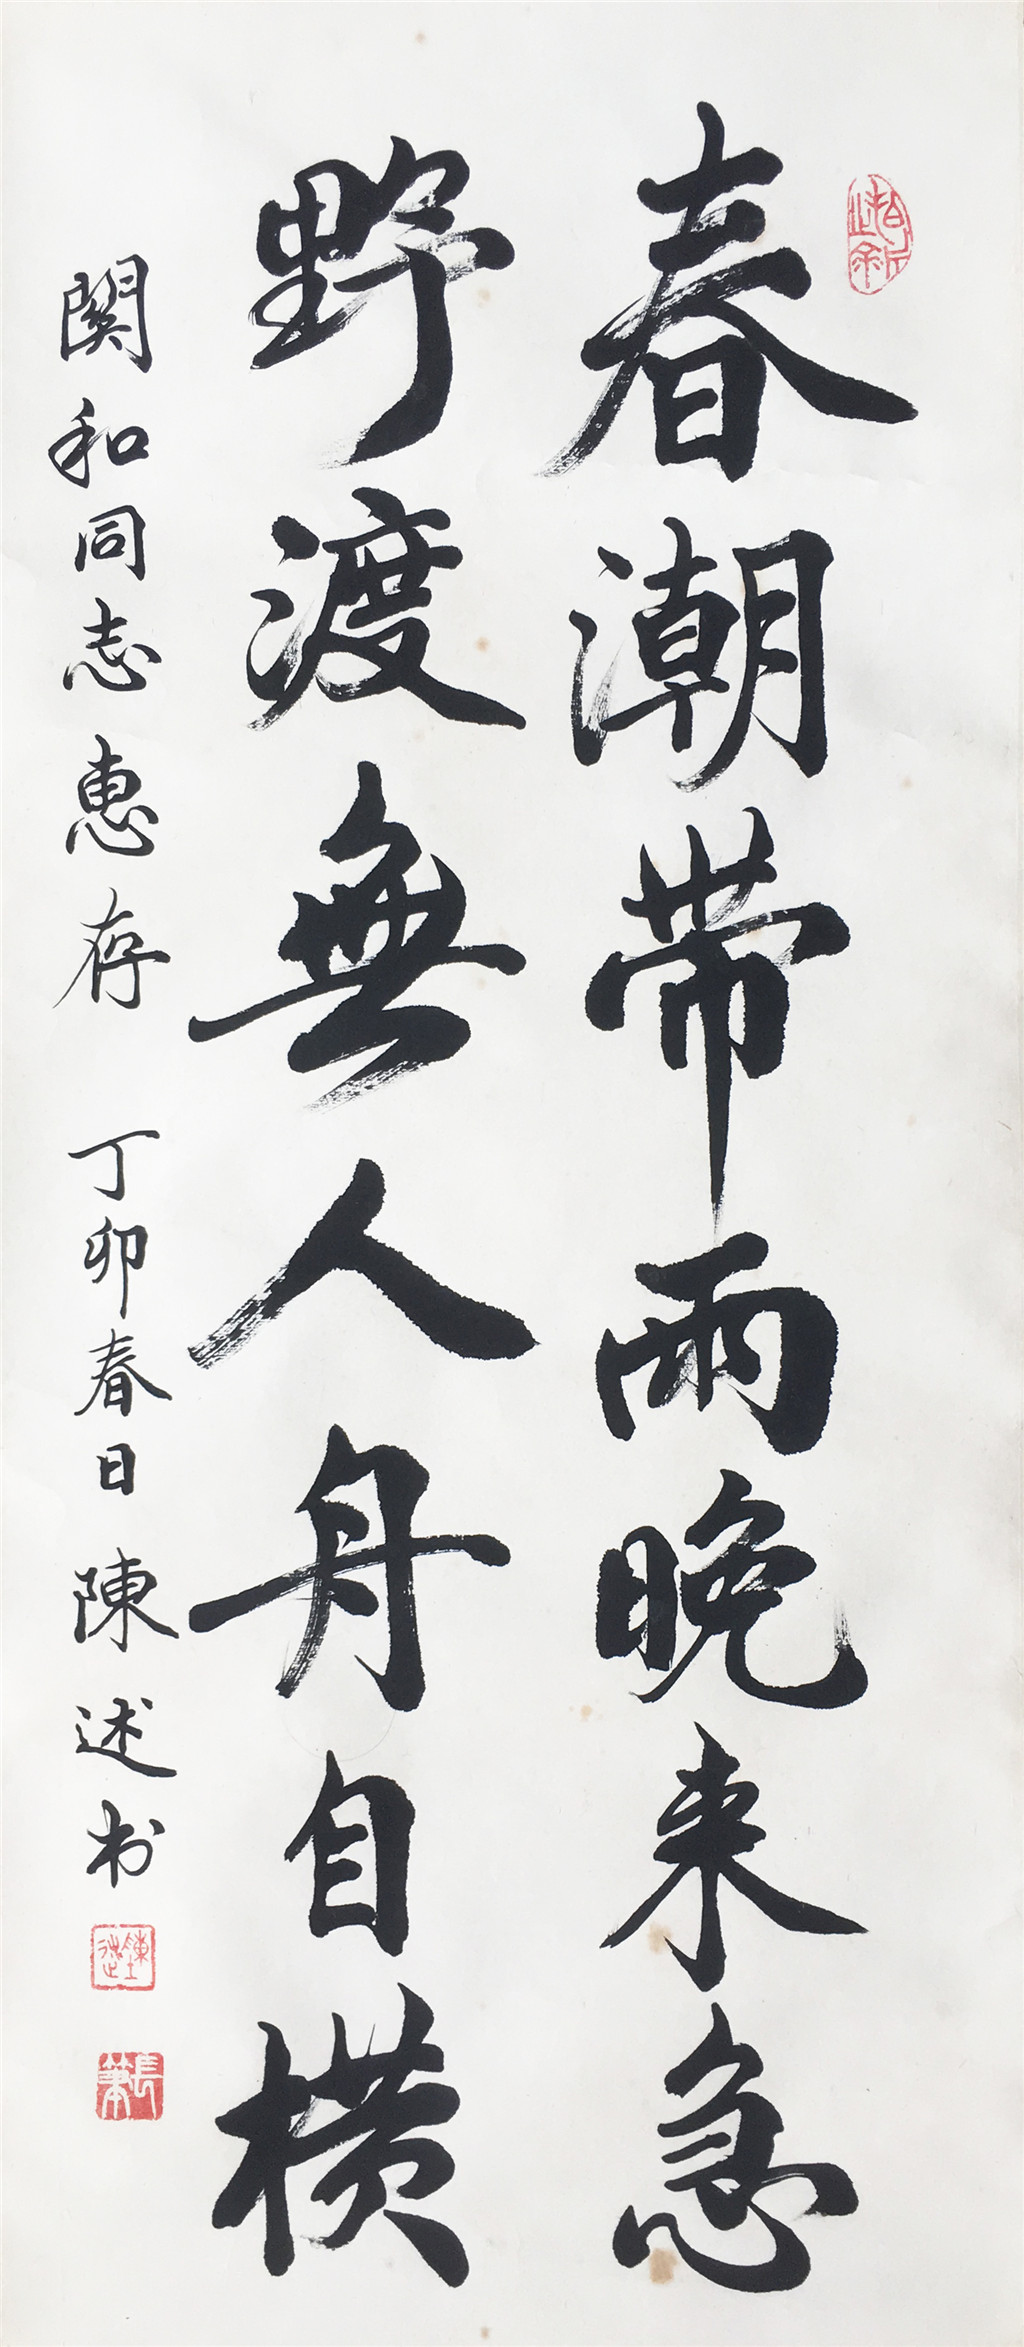 春潮带雨晚来急
野渡無人舟自横
関和同志惠存 丁卯春日 陳述书
陳述